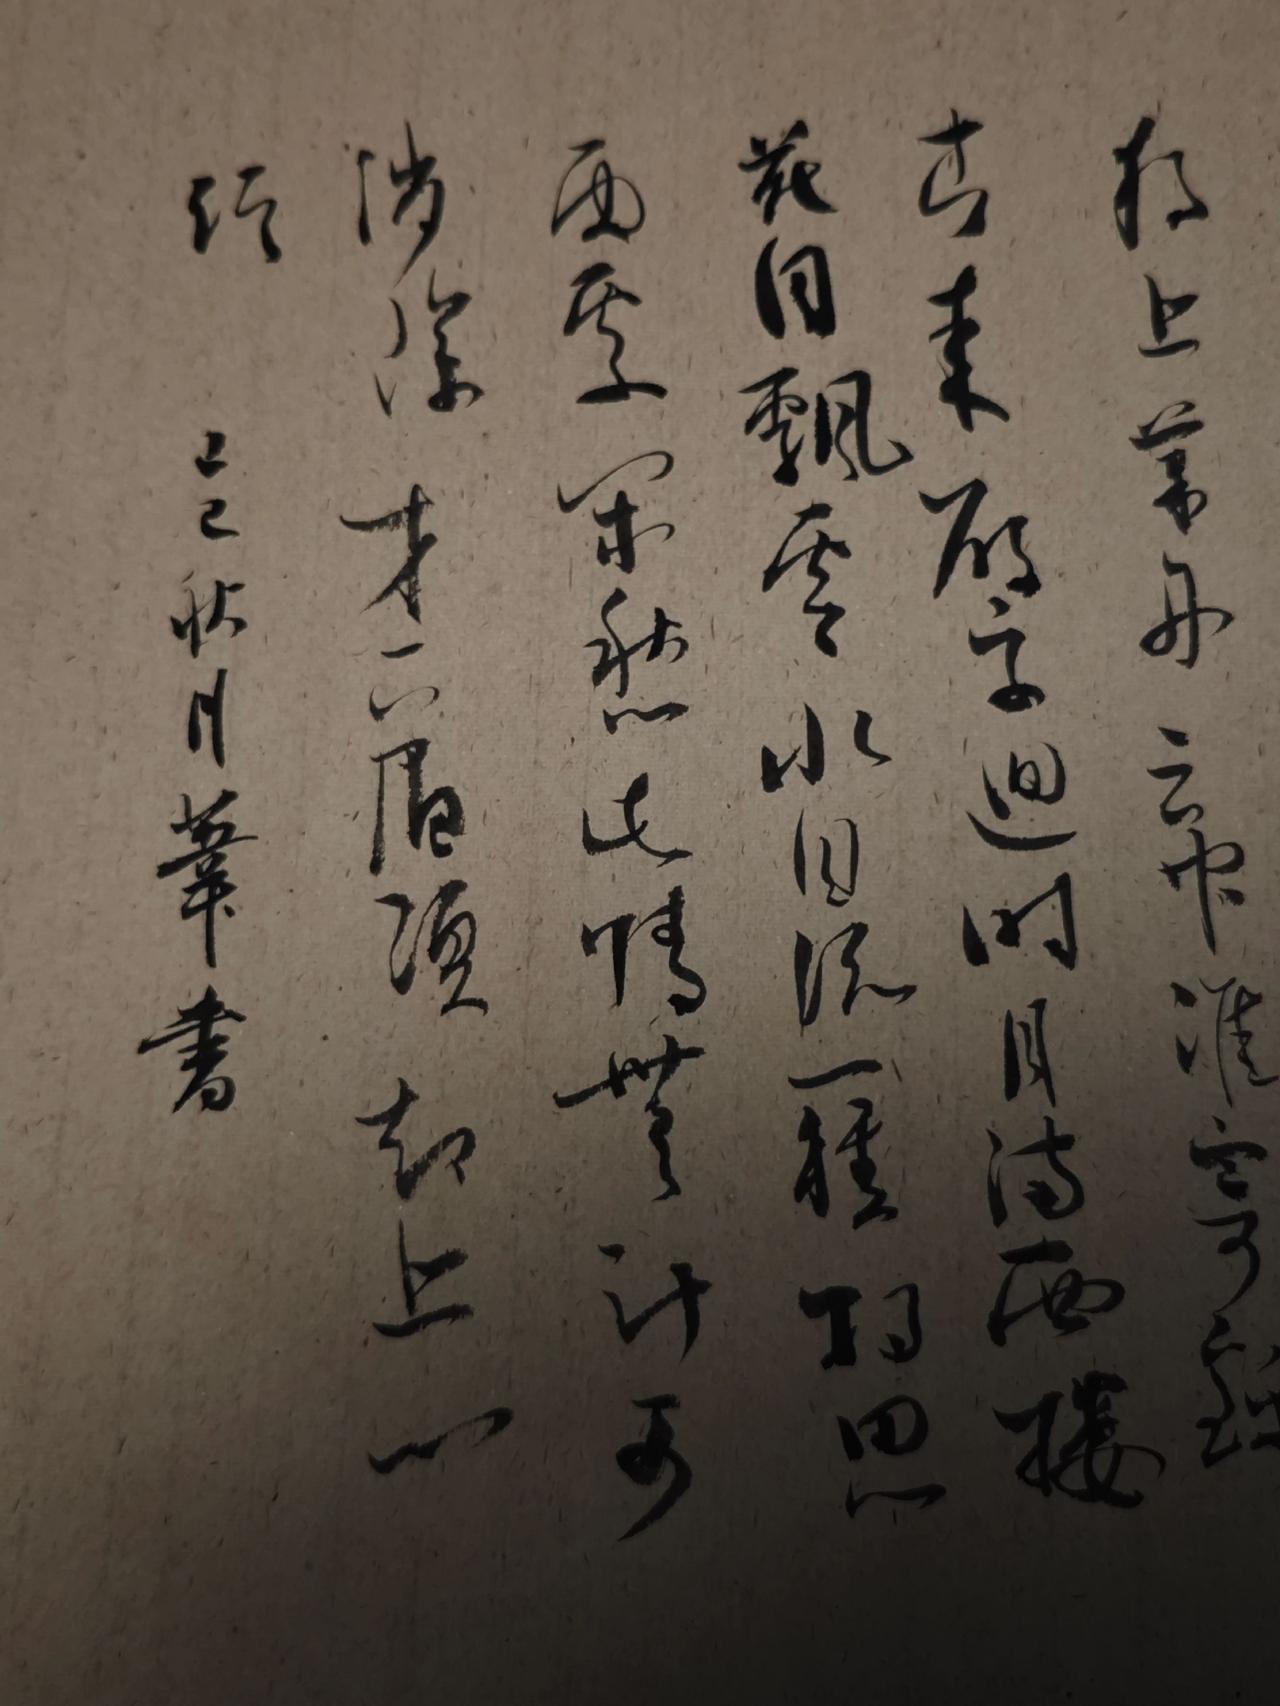 獨上蘭舟云中誰寄錦
書來雁字迴時月滿西樓
花自飄零水自流一種相思
兩處閑愁此情無計可
消除才下眉頭卻上心
頭 己巳秋月葦書